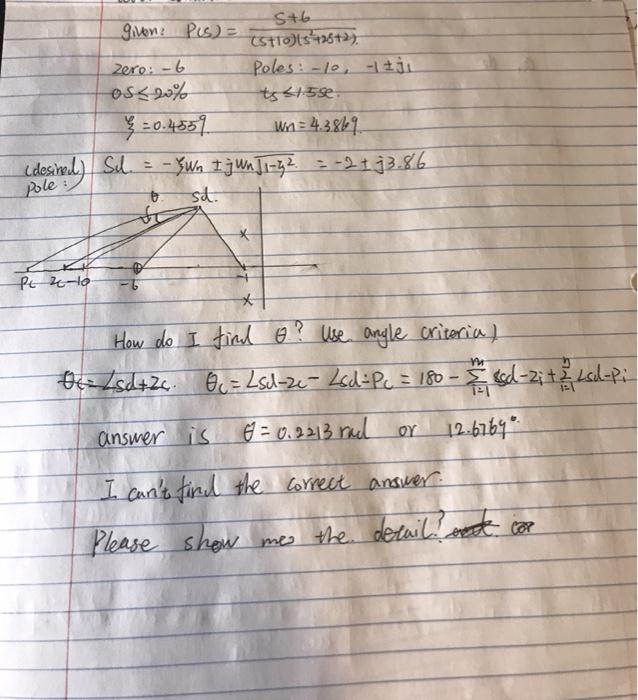 given: P(s) = (s+6)/((s+10)(s²+2s+2)).
zero: -6 Poles: -10, -1±j1
OS ≤ 20% ts ≤ 1.5se.
ξ = 0.4559. wn = 4.3869.
(desired) Sd. = -ξwn ± jwn√1-ξ² = -2 ± j3.86
pole:
θ. sd.
θc
x
Pc Zc -10 -6 -1
x
How do I find θ? Use angle criteria)
θc = ∠sd+zc. θc = ∠sd-zc - ∠sd-Pc = 180 - Σ(i=1 to m) ∠sd-zi + Σ(i=1 to n) ∠sd-Pi
answer is θ = 0.2213 rad or 12.6769°.
I can't find the correct answer.
Please show me the detail?